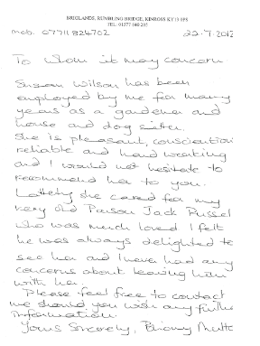 BRIGLANDS, RUMBLING BRIDGE, KINROSS KY13 0PS
TEL: 01577 840
mob. 07711 826702
22-7-2012
To Whom it may concern.
Susan Wilson has been
employed by me for many
years as a gardener and
house and dog sitter.
She is pleasant, conscientious
reliable and hard working
and I would not hesitate to
recommend her to you.
Latterly she cared for my
very old Parson Jack Russel
who was much loved I felt
he was always delighted to
see her and I never had any
concerns about leaving him
with her.
Please feel free to contact
me should you wish any further
information.
Yours Sincerely,